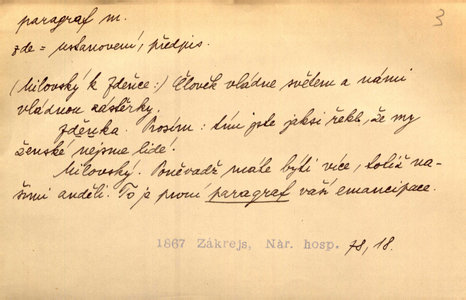 paragraf m.
3
zde = ustanovení, předpis.
(Milovský k Zdeňce:) Člověk vládne světem a námi
vládnou zástěrky.
Zdeňka. Prosím: tím jste jaksi řekl, že my
ženské nejsme lidé!
Milovský. Poněvadž máte býti více, totiž na-
šimi anděli. To je první paragraf vaší emancipace.
1867 Zákrejs, Nár. hosp. 78, 18.